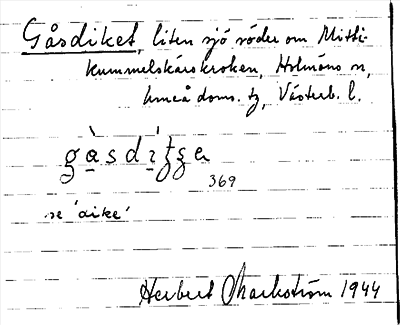 Gåsdiket, liten sjö söder om Mitti-
kummelskärskroken, Holmöns sn,
Umeå doms. tg, Västerb. l.
gàsdítsɐ
369
se 'dike'
Herbert Markström 1944